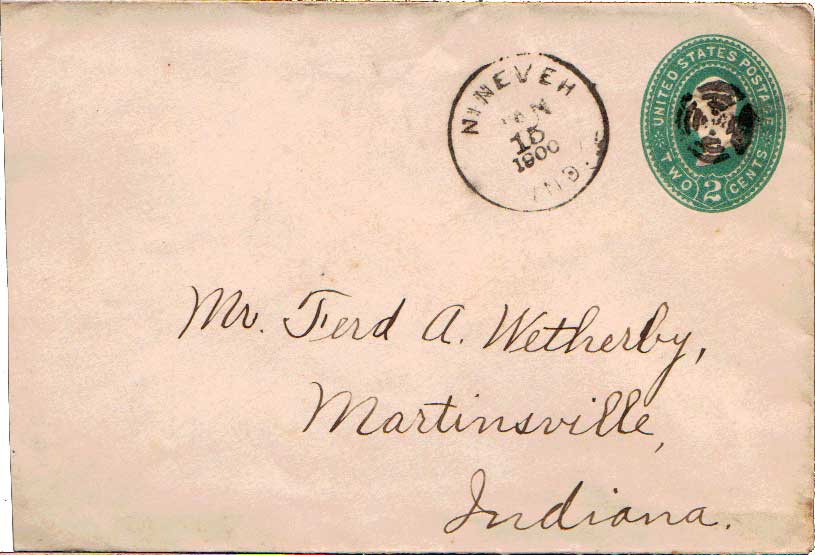 NINEVEH
JAN
15
1900
IND.
UNITED STATES POSTAGE
TWO 2 CENTS
Mr. Ferd A. Wetherby,
Martinsville,
Indiana.